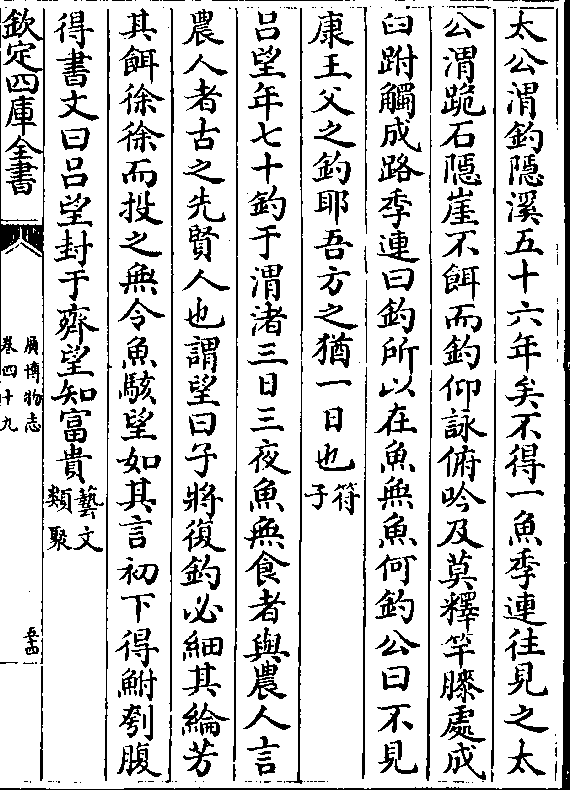 太公渭釣隱溪五十六年矣不得一魚季連往見之太
公渭跪石隱崖不餌而釣仰詠俯吟及莫釋竿膝處成
臼跗觸成路季連曰釣所以在魚無魚何釣公曰不見
康王父之釣耶吾方之猶一日也符子
呂望年七十釣于渭渚三日三夜魚無食者與農人言
農人者古之先賢人也謂望曰子將復釣必細其綸芳
其餌徐徐而投之無令魚駭望如其言初下得鮒刳腹
得書文曰呂望封于齊望知富貴藝文類聚
欽定四庫全書
廣博物志
卷四十九